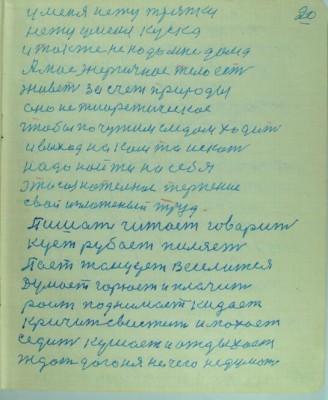 20
у меня нету тряпки
нету у меня куска
и тоже не подымне дома
А мое энергичное тело есть
живет за счет природы
оно не тиаретическое
чтобы по чужим следам ходит
и выход на кой то искат
надо найти на себя
это сознателное терпение
свой изложеный труд
Пишат читает говарит
кует рубает пиляет
Пает танцует Веселится
Думает горюет и плачит
роит поднимает кидает
кричит свистит и похает
седит кушает и отдыхает
ждат догоня нечего недумат